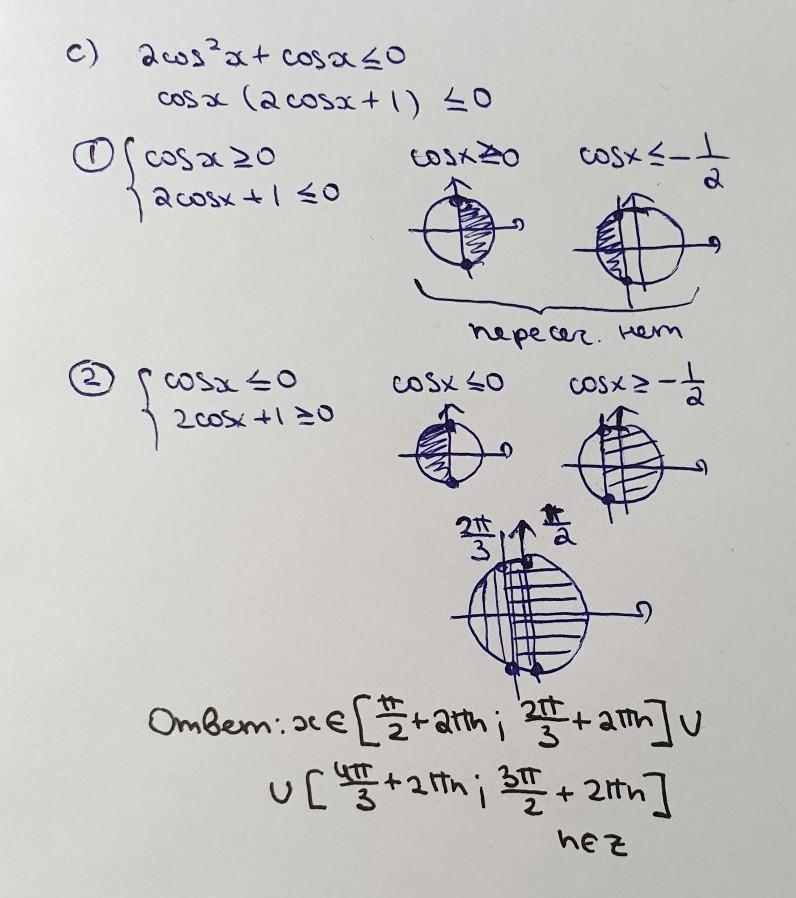 c) 2cos²x + cosx ≤ 0
cosx (2cosx + 1) ≤ 0
① { cosx ≥ 0
2cosx + 1 ≤ 0
cosx ≥ 0
cosx ≤ -1/2
пересеч. нет
② { cosx ≤ 0
2cosx + 1 ≥ 0
cosx ≤ 0
cosx ≥ -1/2
2π/3
π/2
Ответ: x ∈ [π/2 + 2πn ; 2π/3 + 2πn] ∪
∪ [4π/3 + 2πn ; 3π/2 + 2πn]
n ∈ Z